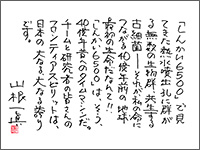 「しんかい6500」で見
てきた熱水噴出孔に群が
る無数の生物群、共生する
古細菌―それが私の命に
つながる40億年前の地球
最初の生命だなんて!
「しんかい6500」は、そう、
40億年昔へのタイムマシンだ。
チームと研究者の皆さんの
フロンティアスピリットは、
日本の大なる大なる誇り
です。
山根一眞